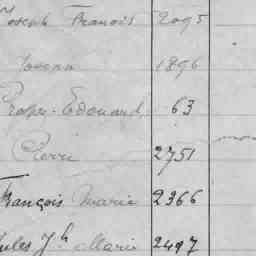 Joseph François 2095
Joseph 1896
Prosper Edouard 63
Pierre 2751
François Marie 2366
Jules Jh Marie 2497